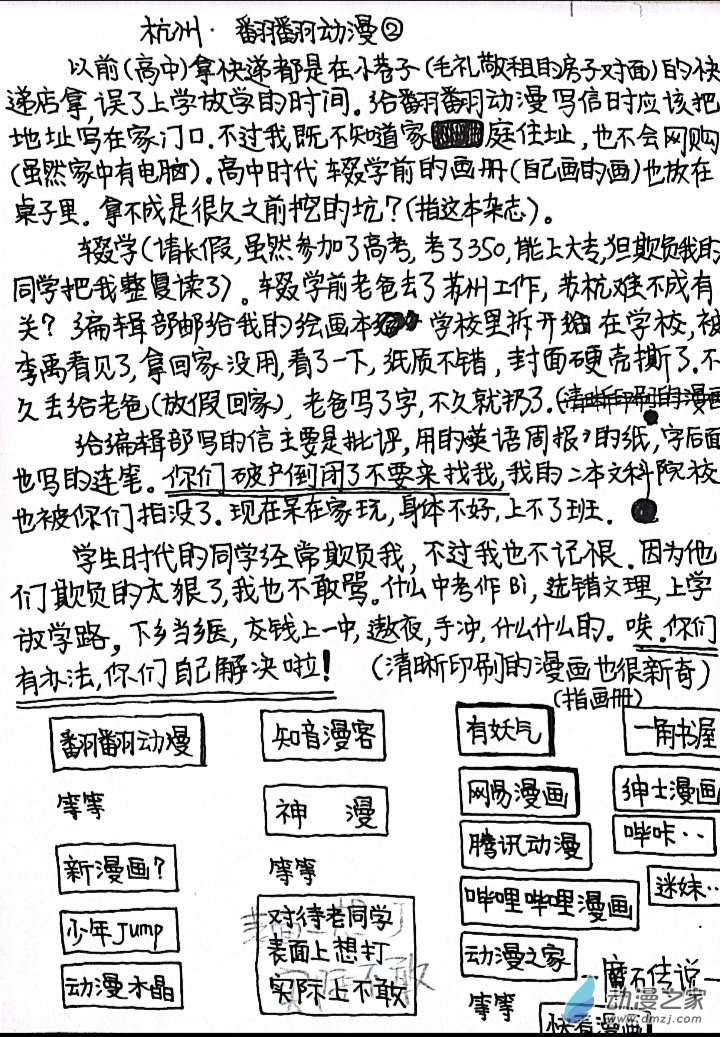 杭州·翻翻动漫②
以前(高中)拿快递都是在小巷子(毛礼敞租的房子对面)的快
递店拿,误了上学放学的时间。给翻翻动漫写信时应该把
地址写在家门口.不过我既不知道家庭住址,也不会网购
(虽然家中有电脑).高中时代辍学前的画册(自己画的画)也放在
桌子里.拿不成是很久之前挖的坑?(指这本杂志)。
辍学(请长假,虽然参加了高考,考了350,能上大专,但欺负我的
同学把我整复读了)。辍学前老爸去了苏州工作,苏杭难不成有
关?编辑部邮给我的绘画本 学校里拆开 在学校,被
李禹看见了,拿回家没用,看了一下,纸质不错,封面硬壳撕了.不
久丢给老爸(放假回家),老爸写了字,不久就扔了.(清晰印刷的漫画
给编辑部写的信主要是批评,用的英语周报?的纸,字后面
也写的连笔。你们破产倒闭了不要来找我,我的二本文科院校
也被你们拍没了.现在呆在家玩,身体不好,上不了班.
学生时代的同学经常欺负我,不过我也不记恨.因为他
们欺负的太狠了,我也不敢骂。什么中考作Bi,选错文理,上学
放学路,下乡当乡医,交钱上一中,遨夜,手冲,什么什么的.唉.你们
有办法,你们自己解决啦! (清晰印刷的漫画也很新奇)
(指画册)
翻翻动漫 知音漫客 有妖气 一角书屋
等等 神 漫 网易漫画 绅士漫画
腾讯动漫 哔咔··
新漫画? 等等 哔哩哔哩漫画 迷妹··
少年Jump 对待老同学
表面上想打
实际上不敢
动漫之家
动漫水晶 等等 魔石传说
快看漫画!
动漫之家
www.dmzj.com